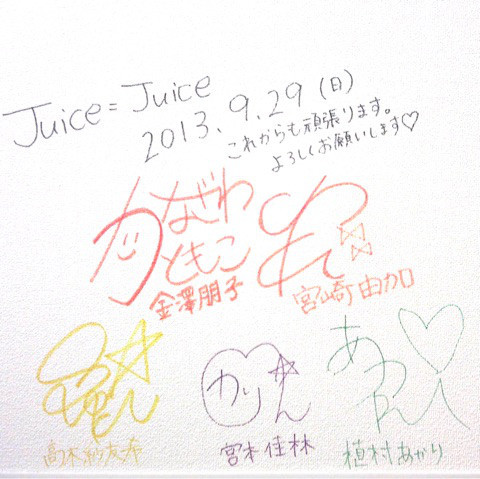 Juice=Juice
2013.9.29(日)
これからも頑張ります。
よろしくお願いします♡
かなざわ
ともこ
金澤朋子
宮崎由加
高木紗友希
かりん
宮本佳林
あーりー
植村あかり